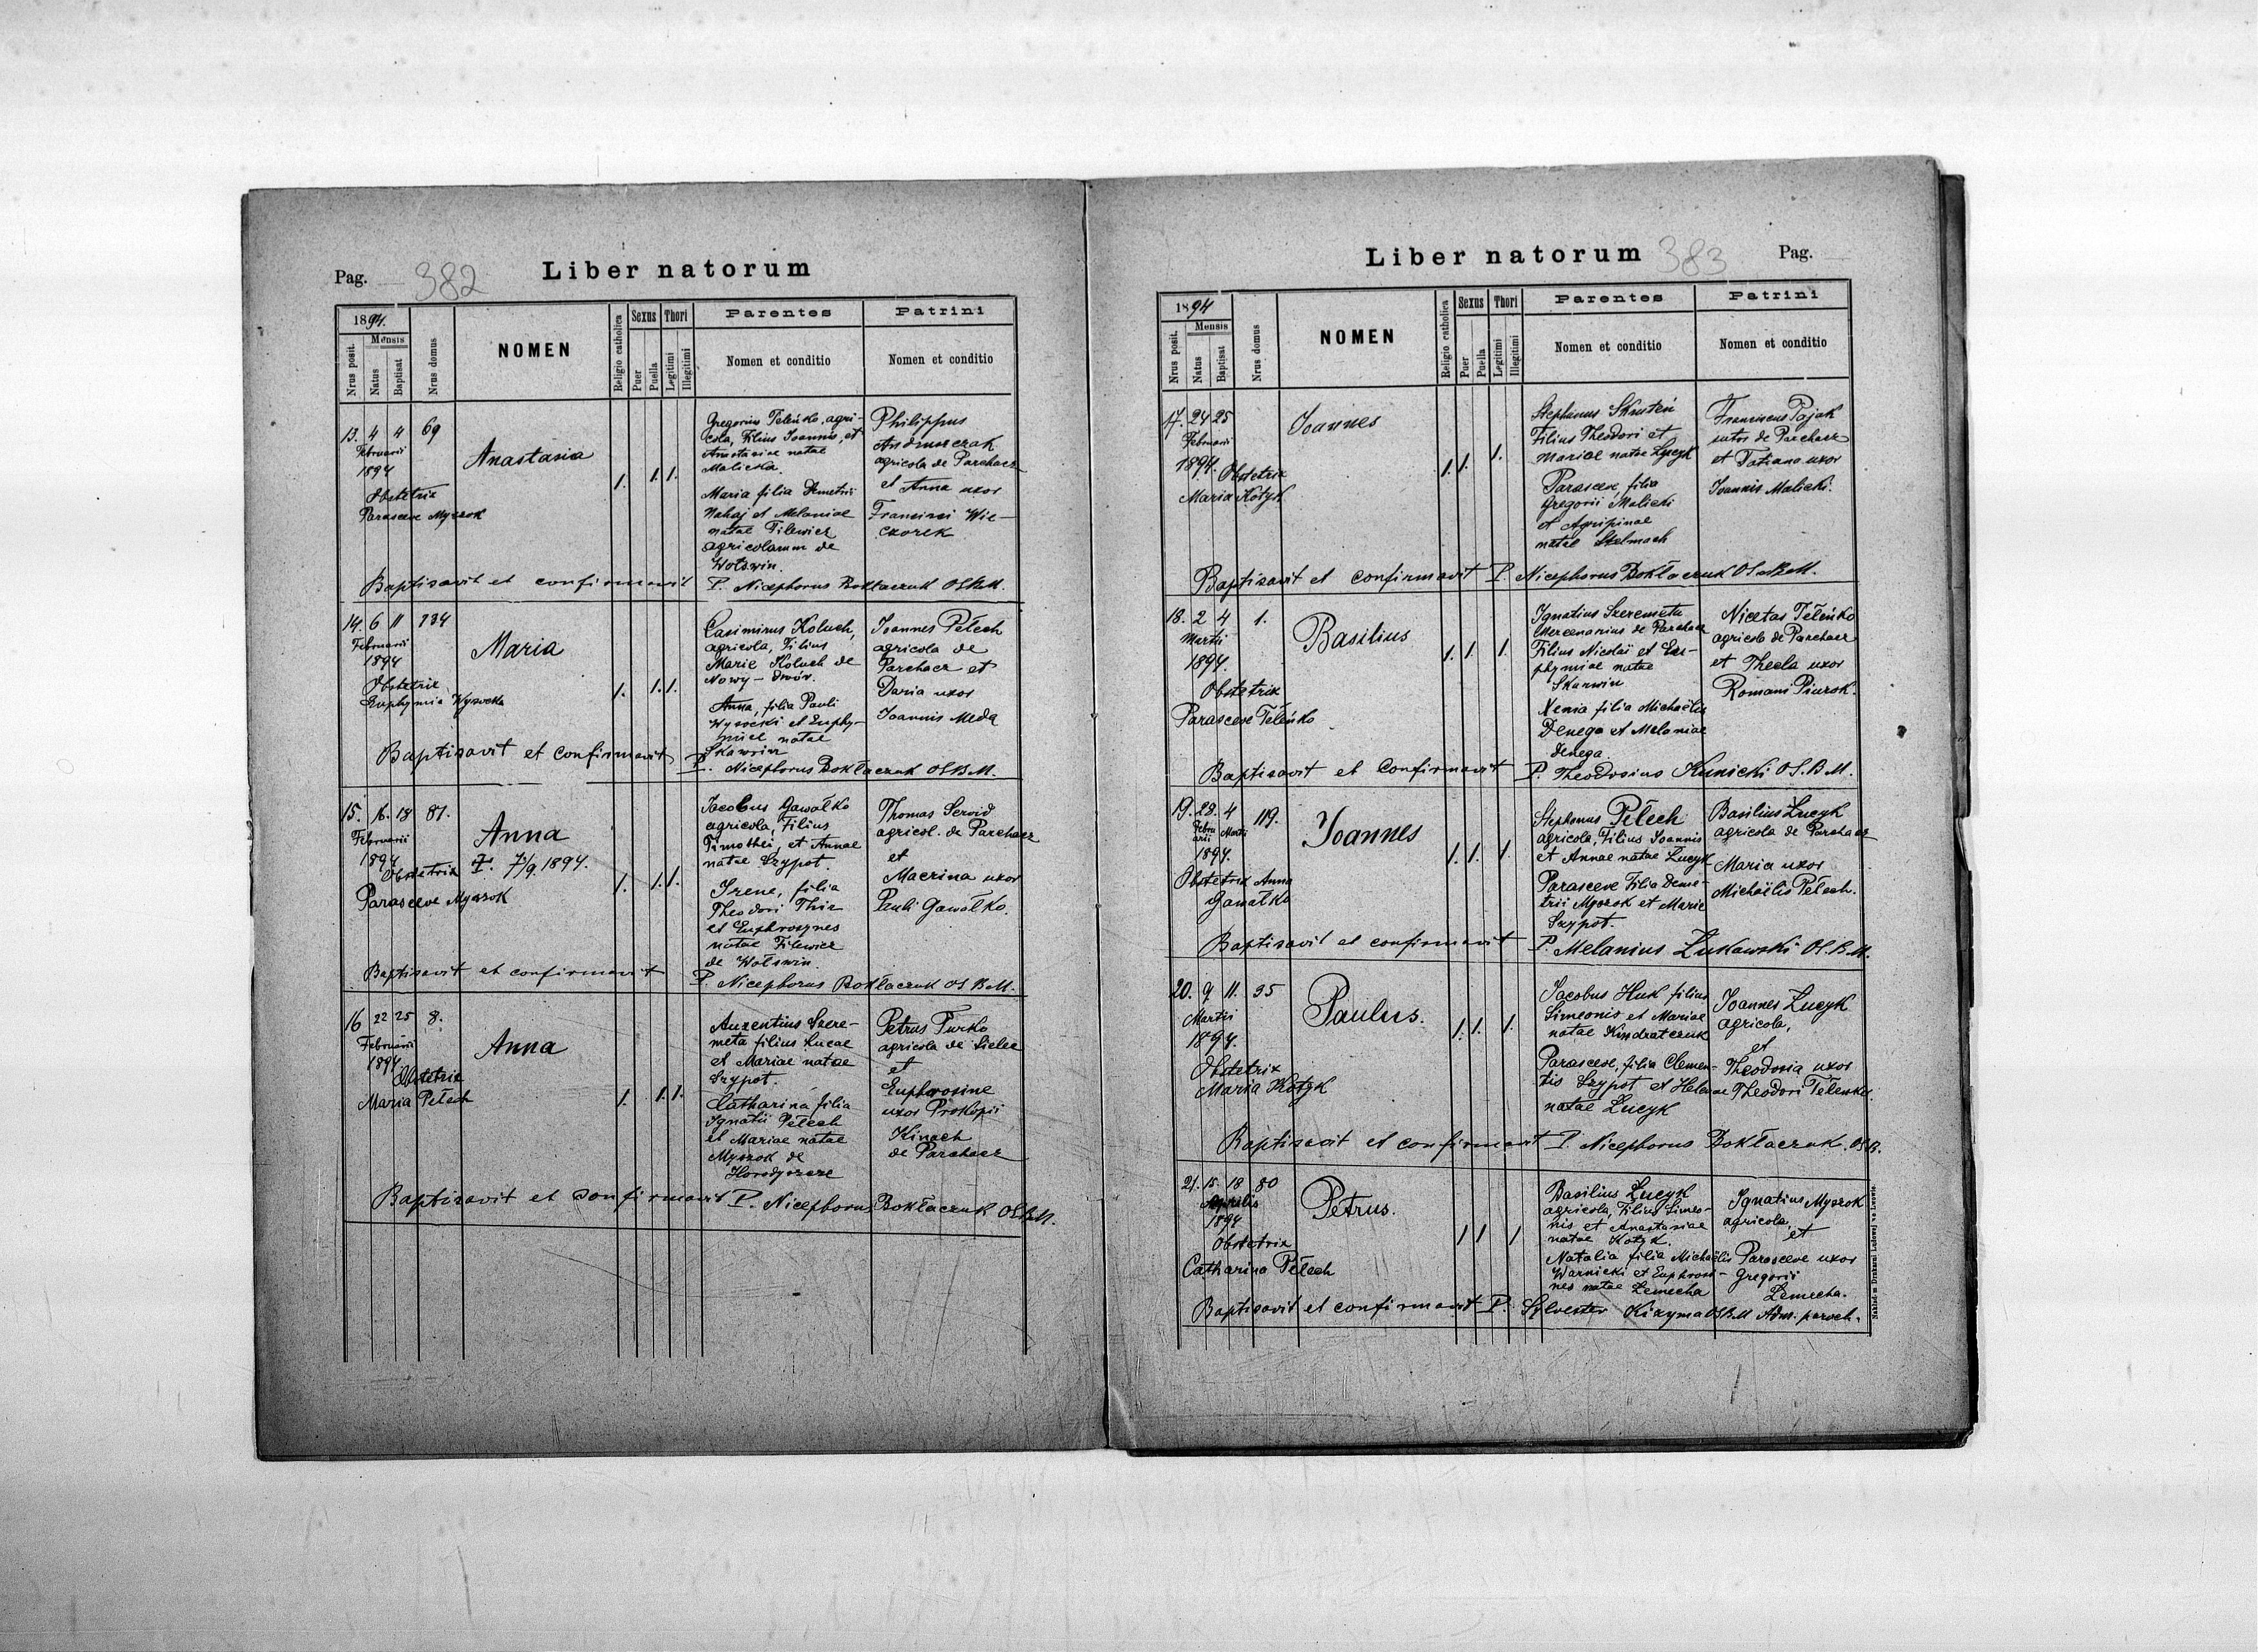 Pag. 382 Liber natorum
1894.
Nrus posit.
Mensis
Natus
Baptisat
Nrus domus
NOMEN
Religio catholica
Sexus
Puer
Puella
Thori
Legitimi
Illegitimi
Parentes
Nomen et conditio
Patrini
Nomen et conditio
13. 4 4 69
Februarii
1894
Obstetrix
Parasceve Myszok
Anastasia
1. 1. 1.
Gregorius Teleńko, agri-
cola, Filius Joannis, et
Anastasiae natae
Malicka.
Maria filia Demetrii
Nahaj et Melaniae
natae Filewicz
agricolarum de
Wolswin.
Philippus
Andruszczak
agricola de Parchacz
et Anna uxor
Francisci Wie-
czorek
Baptisavit et confirmavit P. Nicephorus Boktaczuk OSBM.
14. 6 11 134
Februarii
1894
Obstetrix
Euphymia Wysocka
Maria
1. 1. 1.
Casimirus Koluch,
agricola, Filius
Marie Koluch de
Nowy-dwór.
Anna, filia Pauli
Wysocki et Euphy-
miae natae
Skawrin
Joannes Pełech
agricola de
Parchacz et
Daria uxor
Joannis Meda
Baptisavit et confirmavit P. Nicephorus Boktaczuk OSBM.
15. 16. 18 81.
Februarii
1894
Obstetrix
Parasceve Myszok
Anna
†. 7/9 1894.
1. 1. 1.
Jacobus Gawałko
agricola, Filius
Timothei, et Annae
natae Szypot.
Irene, filia
Theodori Thir
et Euphrosynes
natae Filewicz
de Wolswin.
Thomas Seroid
agricol. de Parchacz
et
Macrina uxor
Pauli Gawałko.
Baptisavit et confirmavit P. Nicephorus Boktaczuk OSBM.
16 22 25 8.
Februarii
1894
Obstetrix
Maria Pełech
Anna
1. 1. 1.
Auxentius Szere-
meta filius Lucae
et Mariae natae
Szypot.
Catharina filia
Ignatii Pełech
et Mariae natae
Myszok de
Horodyszcze
Petrus Turko
agricola de Sielec
et
Euphrosine
uxor Prokopii
Kinach
de Parchacz
Baptisavit et confirmavit P. Nicephorus Boktaczuk OSBM.
Liber natorum 383 Pag.
1894
Nrus posit.
Mensis
Natus
Baptisat
Nrus domus
NOMEN
Religio catholica
Sexus
Puer
Puella
Thori
Legitimi
Illegitimi
Parentes
Nomen et conditio
Patrini
Nomen et conditio
17. 24 25
Februarii
1894. Obstetrix
Maria Kotyk
Joannes
1. 1. 1.
Stephanus Skruteń
Filius Theodori et
Mariae natae Łucyk
Parasceve, filia
Gregorii Malicki
et Agripinae
natae Stelmach
Franciscus Pająk
sutor de Parchacz
et Tatiana uxor
Joannis Malicki.
Baptisavit et confirmavit P. Nicephorus Boktaczuk OSBM.
18. 2 4 1.
Martii
1894.
Obstetrix
Parasceve Teleńko
Basilius
1. 1. 1.
Ignatius Szeremeta
Mercenarius de Parchacz
Filius Nicolai et Eu-
phymiae natae
Skarwin
Xenia filia Michaëlis
Denega et Melaniae
Denega
Nicetas Teleńko
agricola de Parchacz
et Thecla uxor
Romani Piurok.
Baptisavit et Confirmavit P. Theodosius Kunicki O.S.B.M.
19. 28 4 119.
Februarii Martii
1894.
Obstetrix Anna
Gawałko
Joannes
1. 1. 1.
Stephanus Pełech
agricola, Filius Joannis
et Annae natae Łucyk
Parasceve Filia Deme-
trii Myszok et Marie
Szypot.
Basilius Łucyk
agricola de Parchacz
Maria uxor
Michaëlis Pełech.
Baptisavit et confirmavit P. Melanius Łukawski O.S.B.M.
20. 9 11. 35
Martii
1894.
Obstetrix
Maria Kotyk
Paulus.
1. 1. 1.
Jacobus Huk filius
Simeonis et Mariae
natae Kindratczuk
Parasceve, filia Clemen-
tis Szypot et Helenae
natae Łucyk
Joannes Łucyk
agricola,
et
Theodosia uxor
Theodori Teleńko.
Baptisavit et confirmavit P. Nicephorus Boktaczuk. OSB.
21. 15. 18 80
Aprilis
1894
Obstetrix
Catharina Pełech
Petrus.
1 1 1
Basilius Łucyk
agricola, Filius Simeo-
nis et Anastasiae
natae Kotyk.
Natalia filia Michaëlis
Warnicki et Euphrosi-
nes natae Lemecha
Ignatius Myszok
agricola,
et
Parasceve uxor
Gregorii
Lemecha.
Baptisavit et confirmavit P. Sylvester Kizyma OSBM Adm. paroch.
Nakładem Drukarni Ludowej we Lwowie.